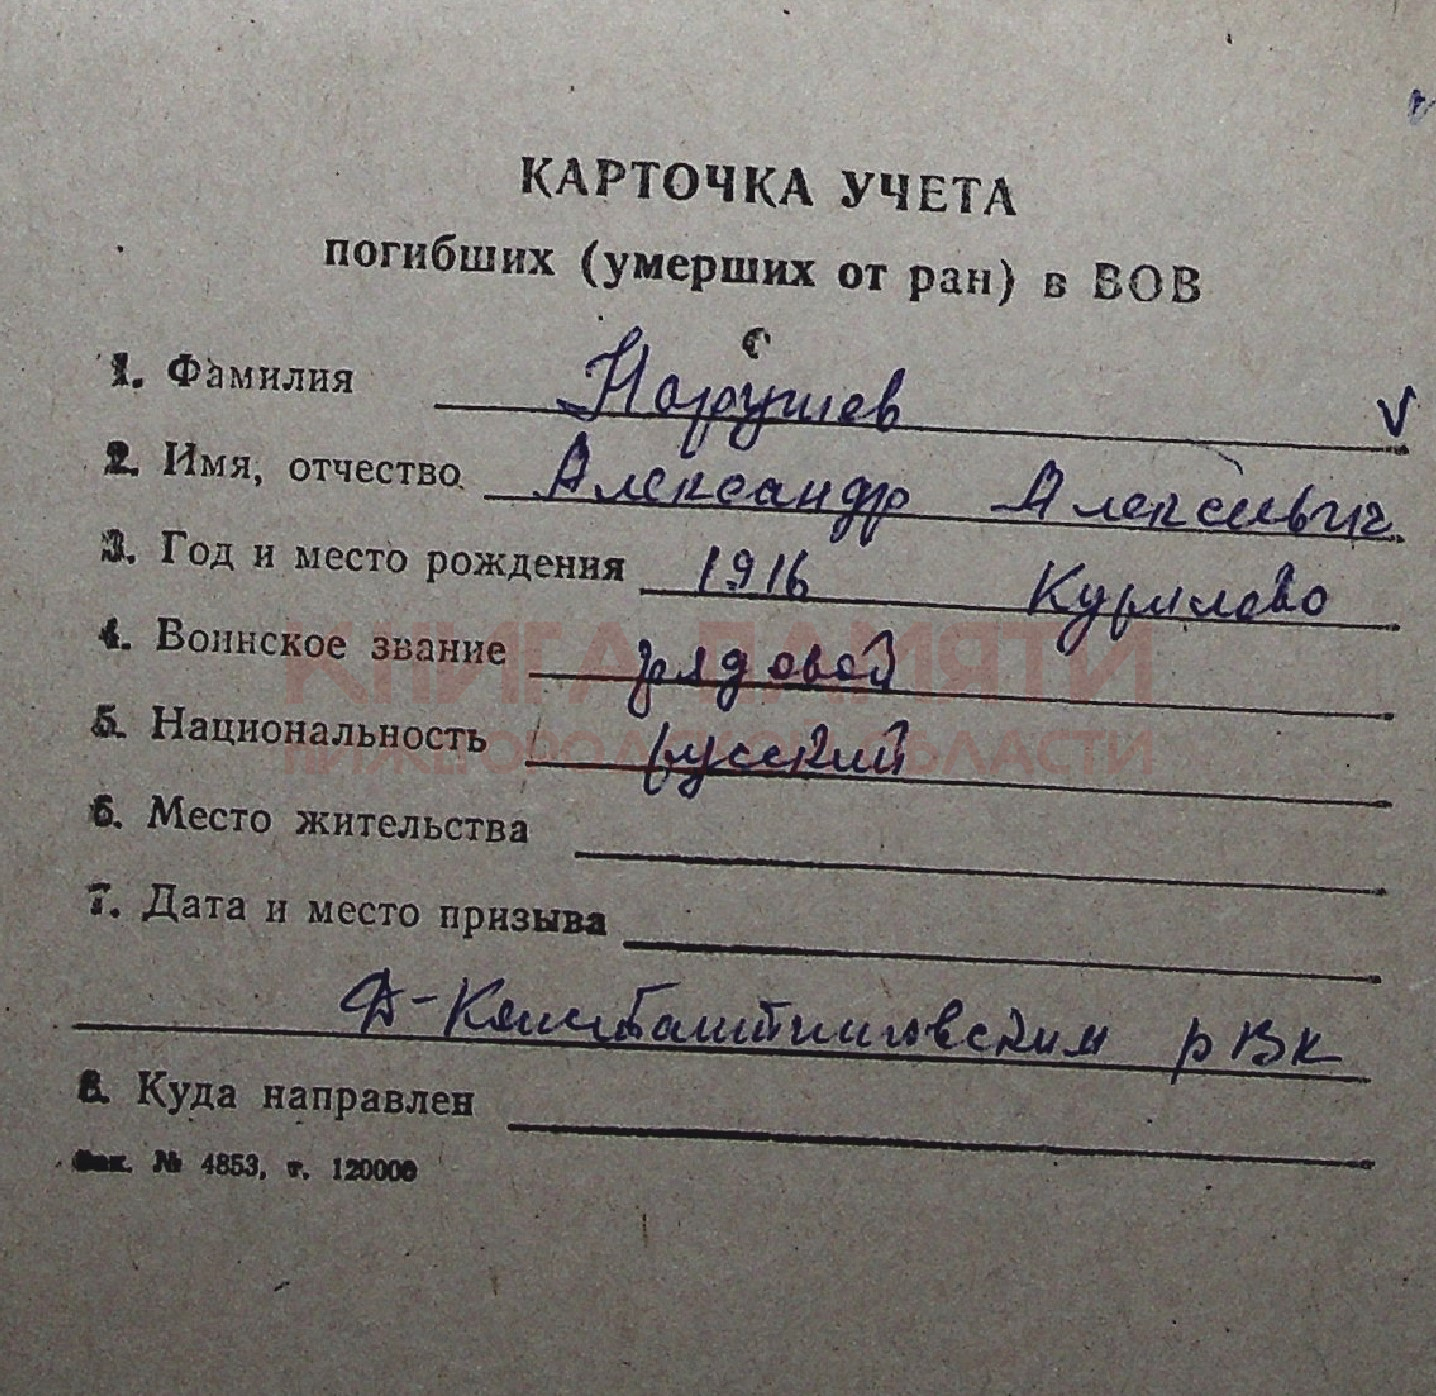 КАРТОЧКА УЧЕТА
погибших (умерших от ран) в ВОВ
с
1. Фамилия Нарушев V
2. Имя, отчество Александр Алексеевич
3. Год и место рождения 1916 Курилово
4. Воинское звание рядовой
КНИГА ПАМЯТИ
5. Национальность русский
НИЖЕГОРОДСКОЙ ОБЛАСТИ
6. Место жительства
7. Дата и место призыва
рВк
8. Куда направлен
Зак. № 4853, т. 120000